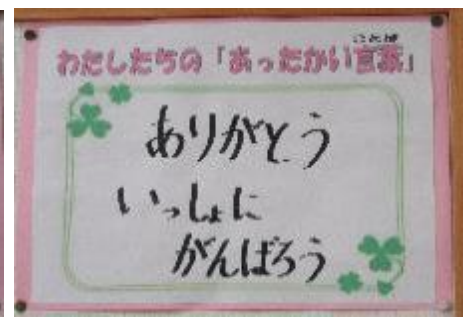 わたしたちの「あったかい言葉」
ことば
ありがとう
いっしょに
がんばろう